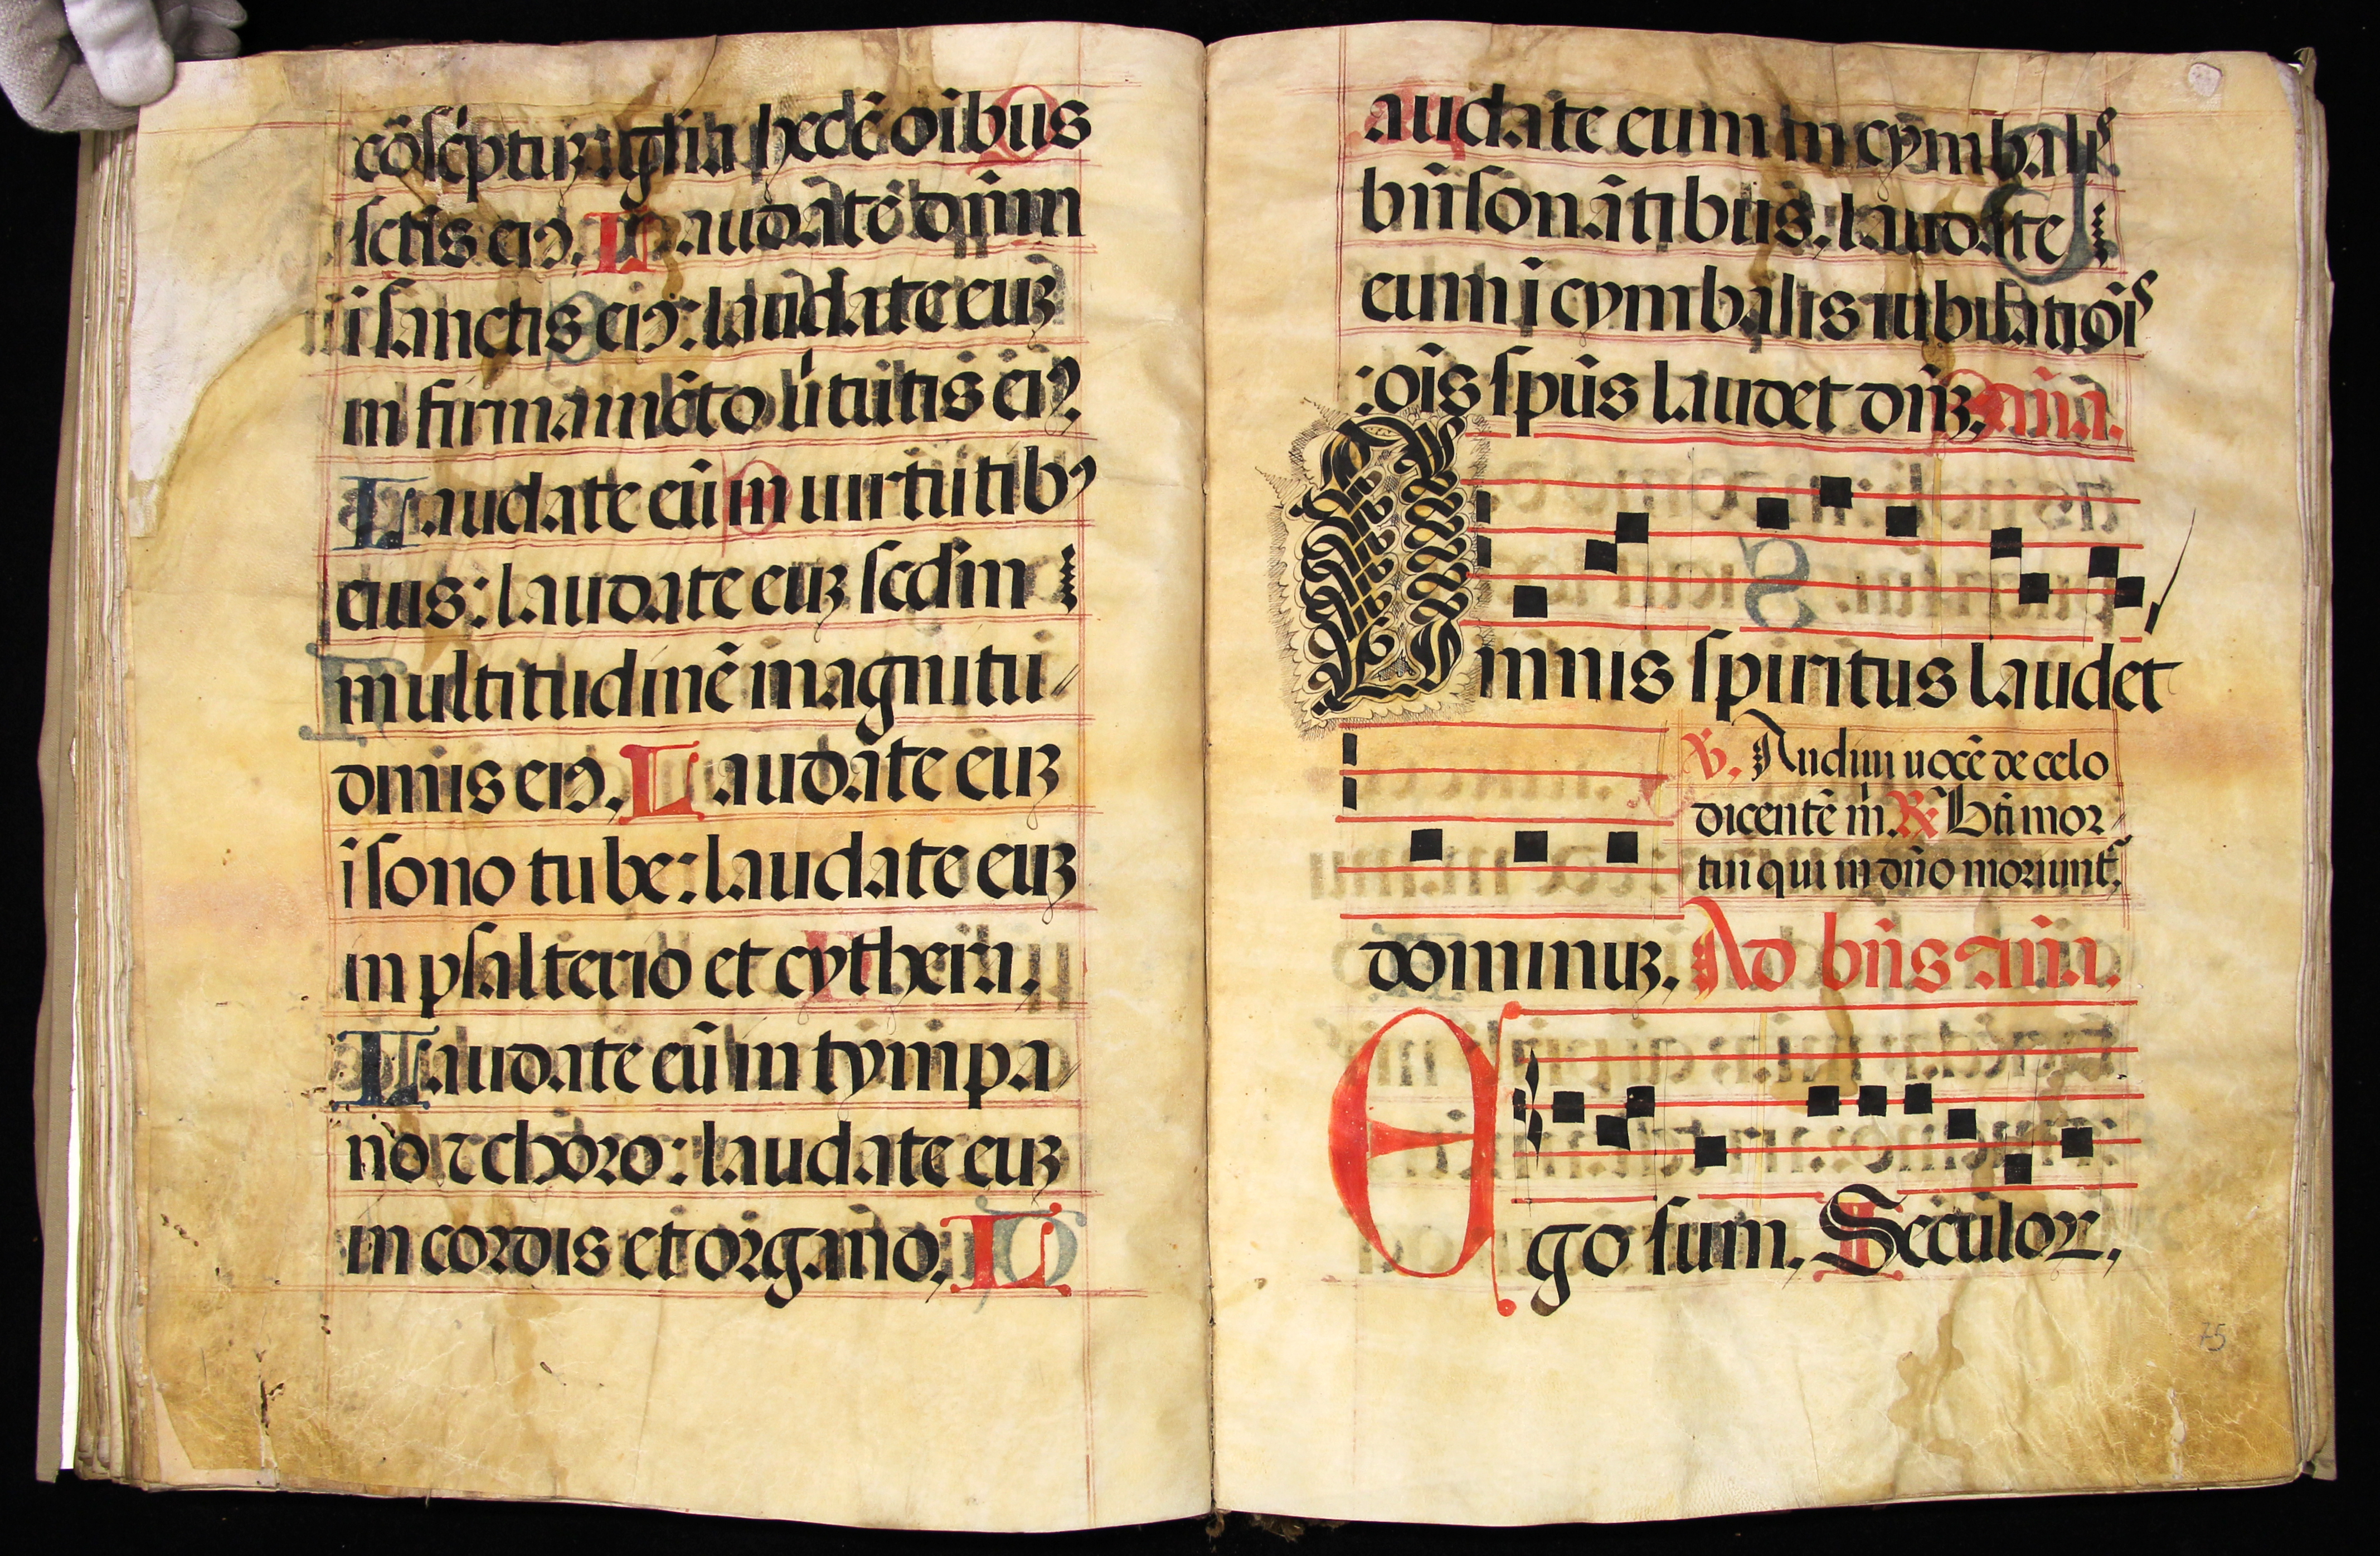 cōsc̓ptuꝫ gl̄ia hec ē oībus
sc̄tīs eiꝯ. Laudate dn̄m
ī sanctis eiꝯ: laudate euꝫ
in firmamēto ūtutis eiꝯ.
Laudate eū in uirtutibꝯ
eius: laudate euꝫ scd̄m
multitudinē magnitu⸗
dinis eiꝯ. Laudate euꝫ
ī sono tube: laudate euꝫ
in psalterio et cythera.
Laudate eū in tympa⸗
no ⁊ choro: laudate euꝫ
in cordis et organo. L
audate eum in cymbalis
bn̄sonātibus: laudate
eum ī cymbalis iubilatiōis
: oīs sp̄us laudet dn̄ꝫ. an̄a.
Omnis spiritus laudet
℣. Audiui uocē de celo
dicentē m̄. ℟ Bt̄i mor⸗
tui qui in dn̄o moriunt᷑.
dominuꝫ. Ad bn̄s an̄a.
Ego sum. Seculoꝝ.
75